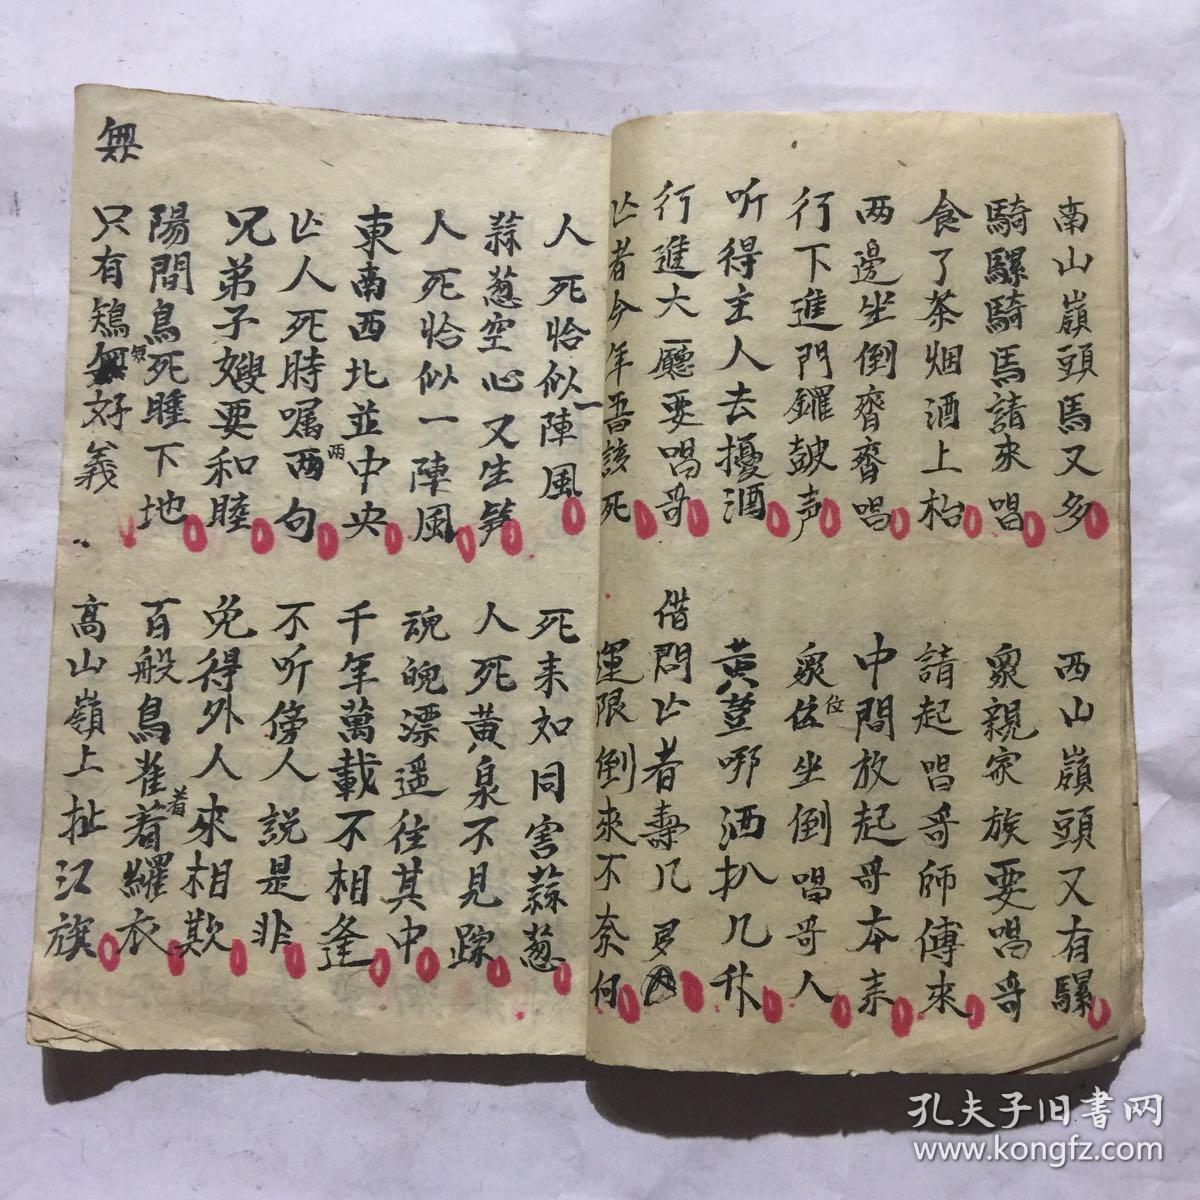 南山嶺頭馬又多
西山嶺頭又有騾
騎騾騎馬請來唱
衆親家族要唱哥
食了茶烟酒上枱
請起唱哥師傅來
两邊坐倒齊齊唱
中間放起哥本来
行下進門鑼鼓声
衆位坐倒唱哥人
听得主人去擾酒
黄荳㖿洒扒几秝
行進大廳要唱哥
借問亡者壽几多
亡者今年吾該死
運限倒來不奈何
人死恰似一陣風
死来如同害蒜葱
蒜葱空心又生笋
人死黄泉不見踪
人死恰似一陣風
魂魄漂遥往其中
東南西北並中央
千年萬載不相逢
亡人死時嘱两句
不听傍人說是非
兄弟子嫂要和睦
免得外人來相欺
陽間鳥死睡下地
百般鳥雀着羅衣
只有鴉無好義
高山嶺上扯江旗
無
孔夫子旧书网
www.kongfz.com